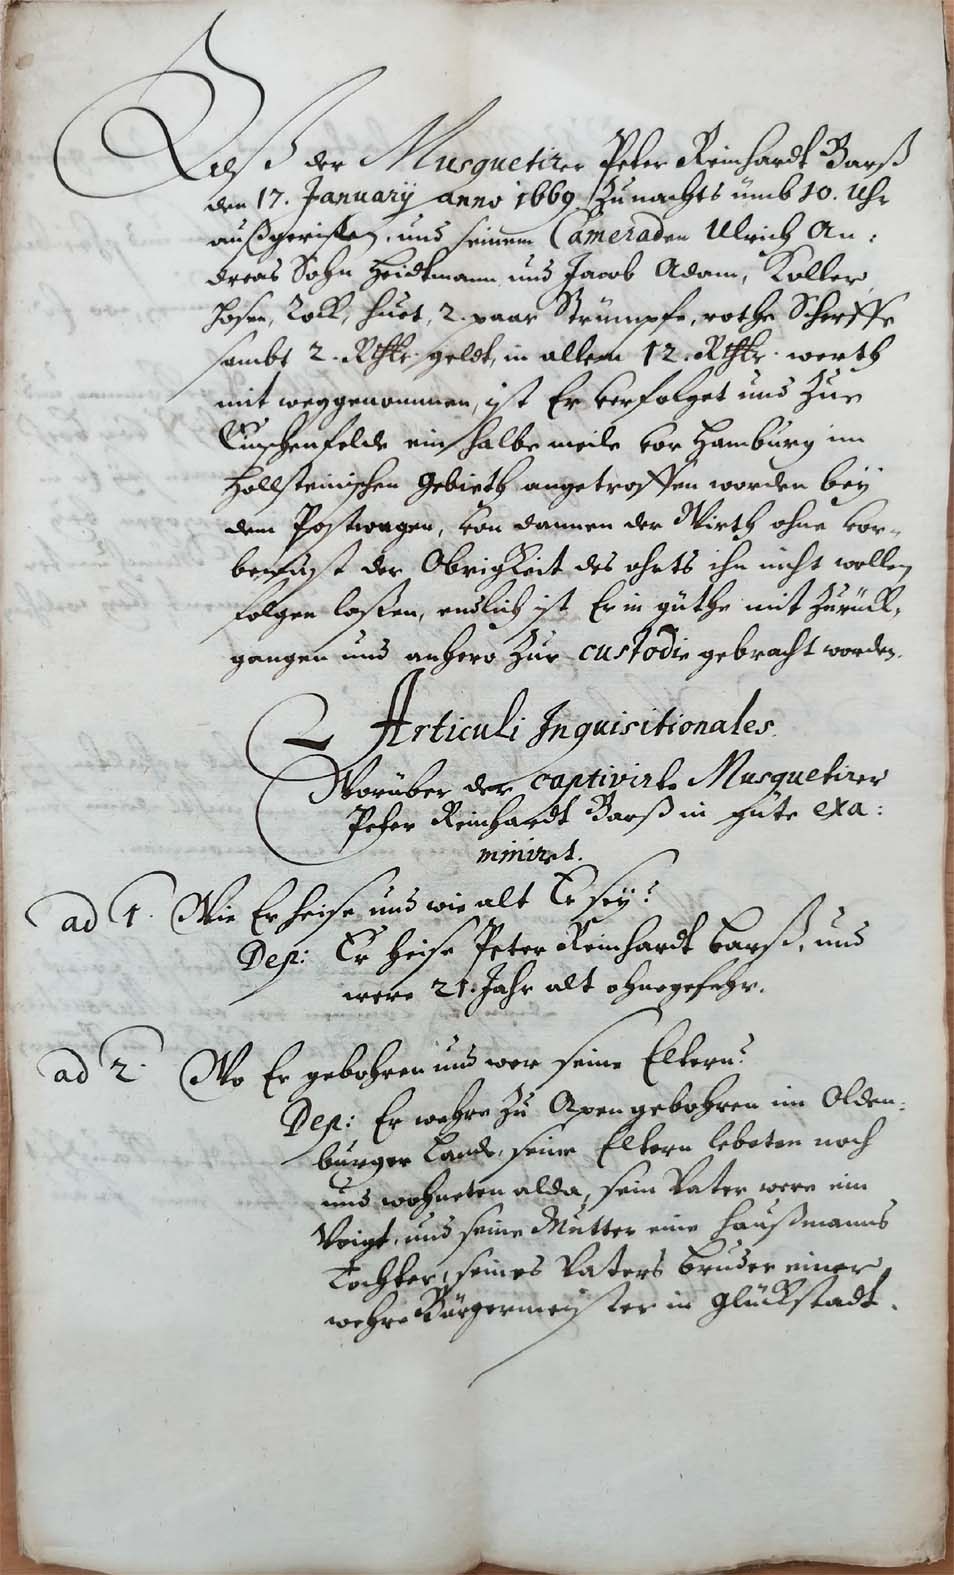 Alß der Musquetirer Peter Reinhardt Barß
den 17. January anno 1669 Zu nachts umb 10. Uhr
außgerißen, und seinem Cameraden Ulrich An:
dreas Sohn Heidtmann und Jacob Adam, Koller
Hosen, Rock, Huet, 2. paar Strümpfe, rothe Scherffe
sambt 2. Rthlr. geldt, in allem 12. Rthlr. werth
mit weggenommen, ist Er verfolget und Zue
ein halbe meile vor Hamburg im
Hollsteinischen Gebieth angetroffen worden bey
dem Postwagen, von dannen der Wirth ohne vor-
bewust der Obrigkeit des ohrts ihn nicht wollen
folgen laßen, endlich ist Er in güthe mit Zurück,
gangen und anhero Zur custodie gebracht worden.
Articuli Inquisitionales.
Worüber der captivirte Musquetirer
Peter Reinhardt Barß in güte exa:
miniret.
ad 1. Wie Er heise und wie alt Er sey?
Dep: Er heise Peter Reinhardt Barß, und
were 21. Jahr alt ohngefehr.
ad 2. Wo Er gebohren und wer seine Eltern?
Dep: Er wehre Zu Apen gebohren im Olden:
burger Lande, seine Eltern lebeten noch
und wohneten alda, sein Vater were ein
Voigt, und seine Mutter eine Haußmanns
Tochter, seines Vaters bruder einer
wehre Bürgermeister in Glückstadt.